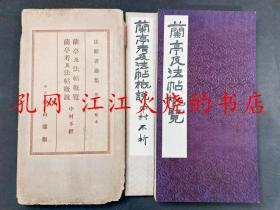 蘭亭及法帖概覧
蘭亭考及法帖概説 中村不折
法帖書論集
蘭亭及法帖概覧
中村不折
蘭亭考及法帖概説
孔网 江江火烧的书店